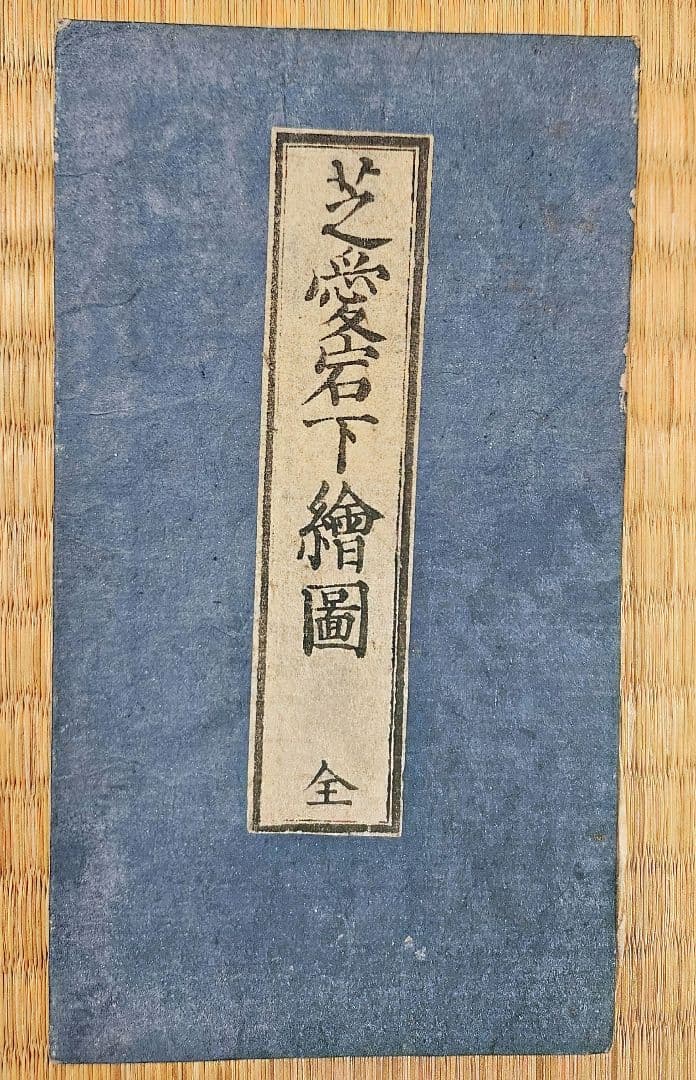 芝愛宕下繪圖 全